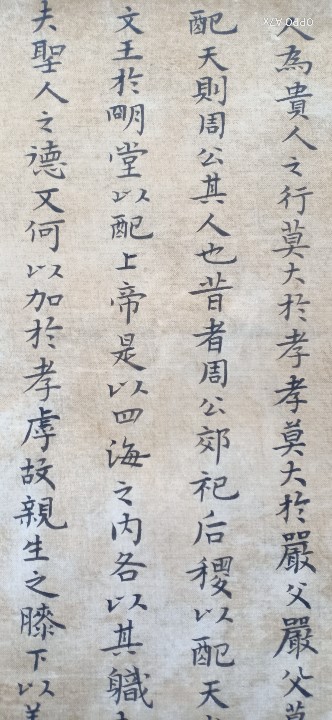 人為貴人之行莫大於孝孝莫大於嚴父嚴父莫
配天則周公其人也昔者周公郊祀后稷以配天
文王於明堂以配上帝是以四海之内各以其職
夫聖人之德又何以加於孝虖故親生之膝下以養
OPPO A7x